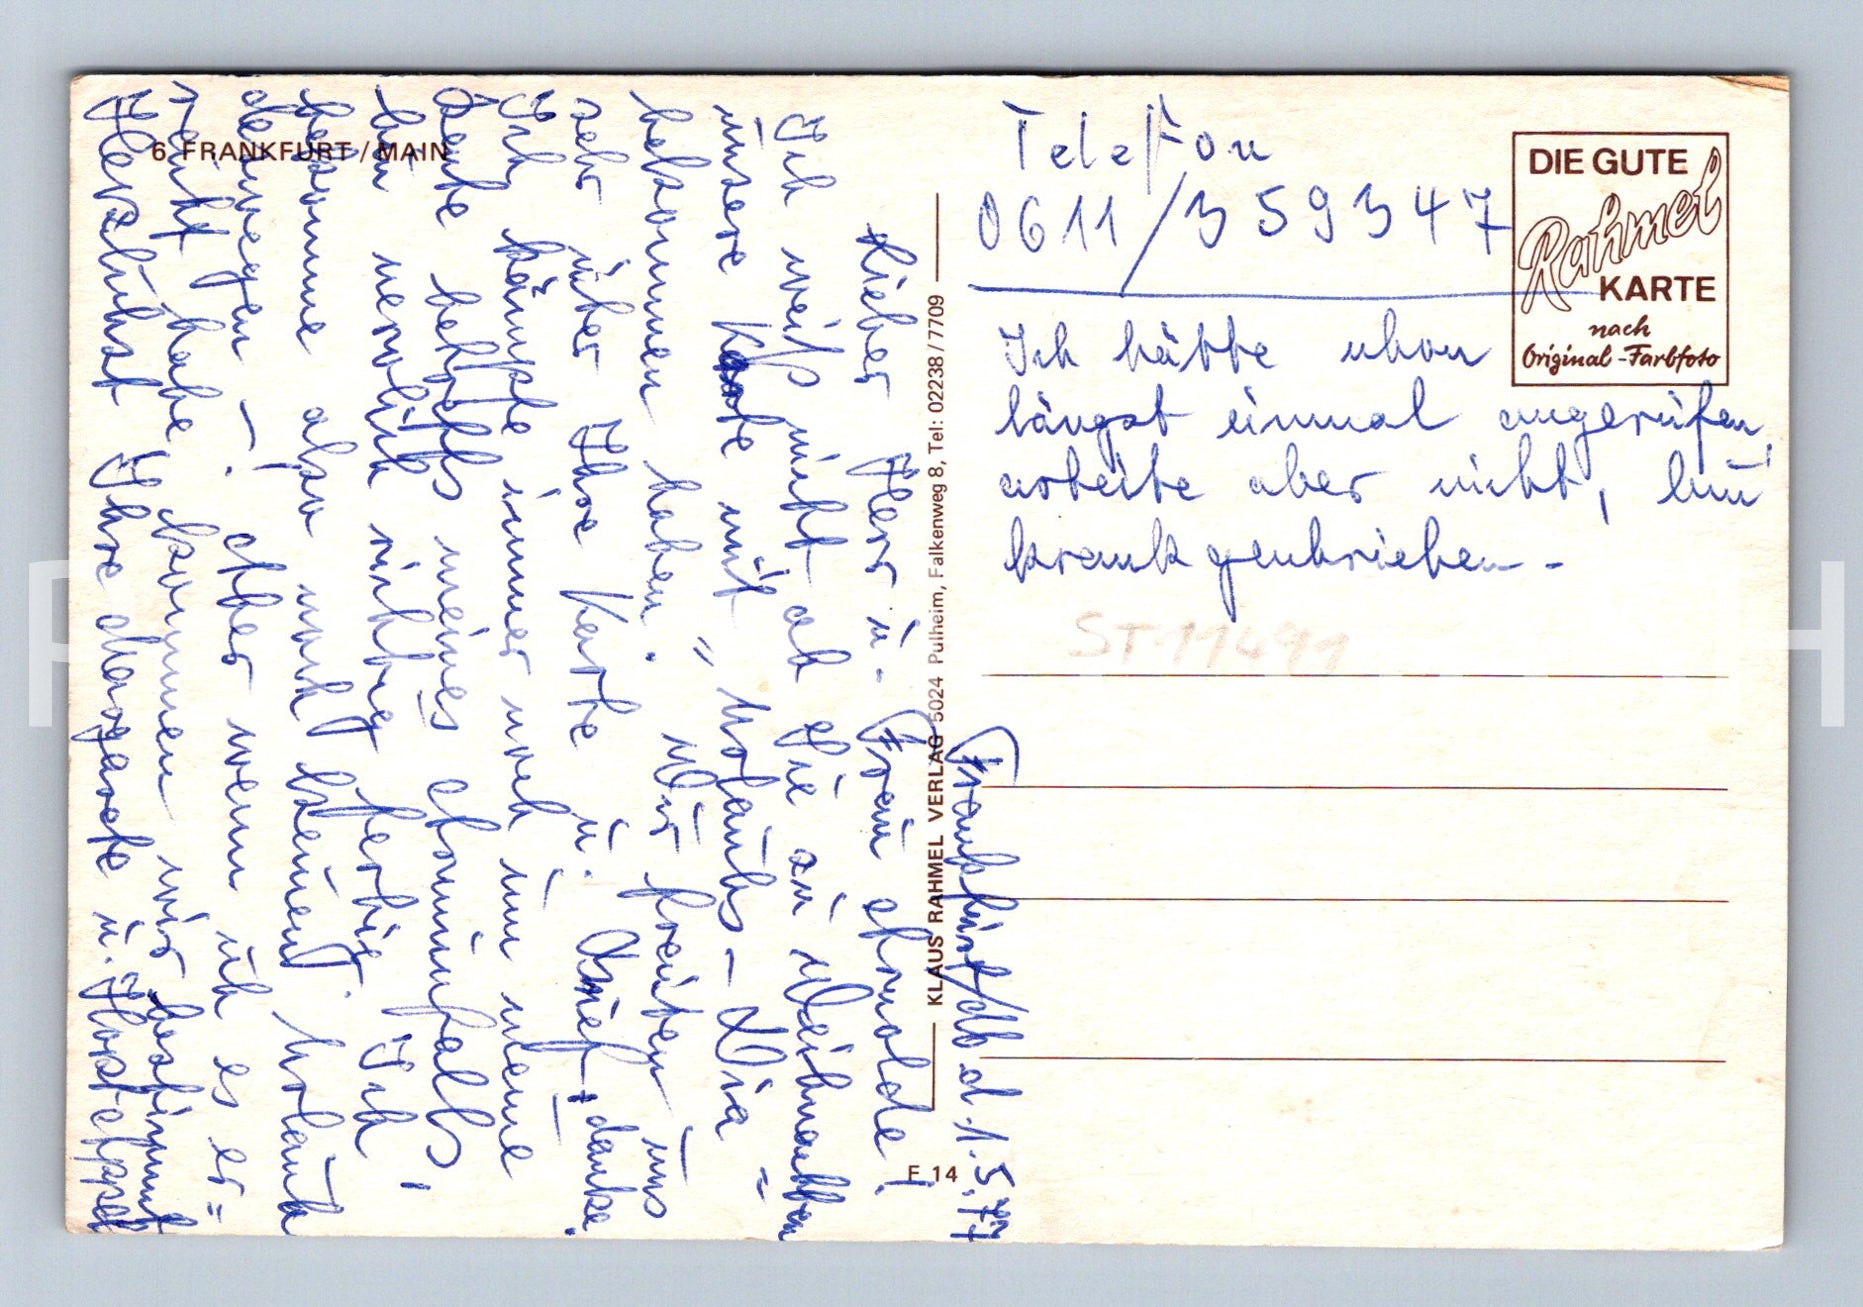 6 FRANKFURT / MAIN
Frankfurt/M d. 1.5.77
Lieber Herr u. Frau Arnolde!
Ich weiß nicht ob Sie zu Weihnachten
unsere Karte mit " Urlaubs - Dia "
bekommen haben. Wir freuten uns
sehr über Ihre Karte u. Brief, danke.
Ich kämpfe immer noch um meine
Rente behufs meines
bin nervlich richtig fertig. Ich
bekomme also noch keinen Urlaub
deswegen -! Aber wenn ich es er=
reicht habe kommen wir bestimmt
Herzlichst Ihre Margarete u. Horst Appel
KLAUS RAHMEL VERLAG 5024 Pulheim, Falkenweg 8, Tel: 02238 / 7709
F 14
Telefon
0611/359347
Ich hätte schon
längst einmal angerufen,
arbeite aber nicht, bin
krank geschrieben -
ST-11491
DIE GUTE
Rahmel
KARTE
nach
Original-Farbfoto